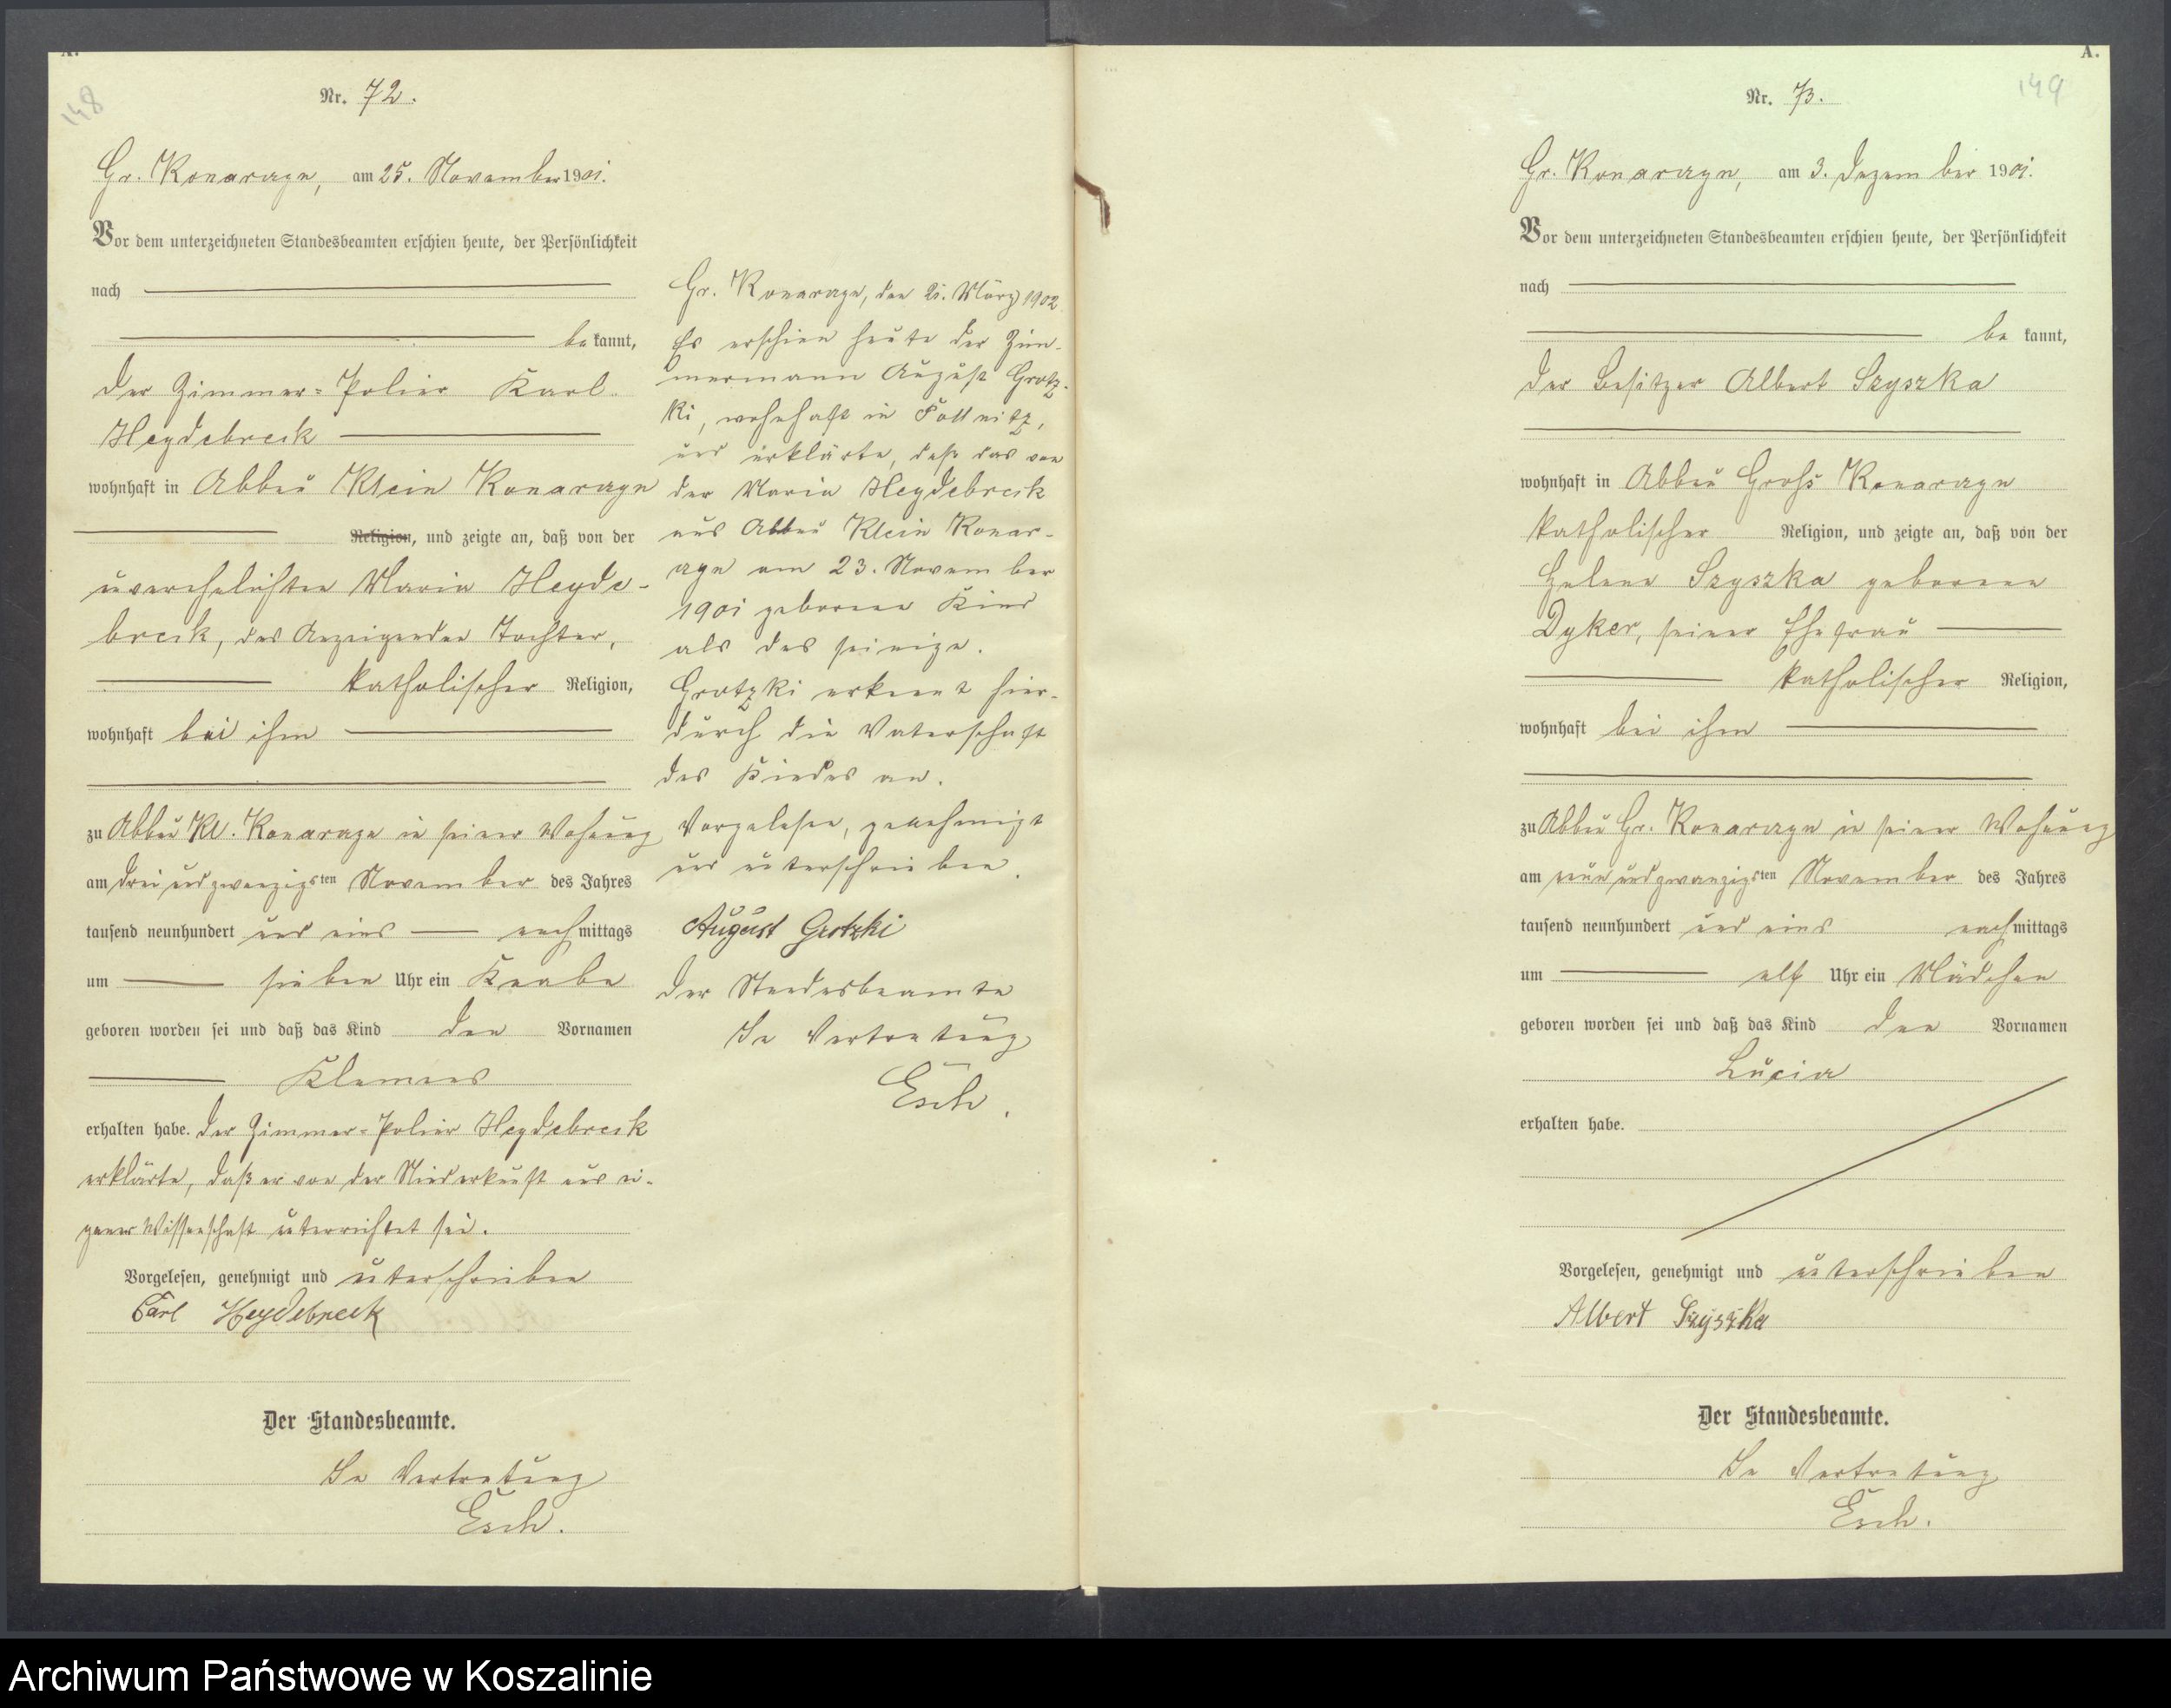 A.
148
Nr. 72.
Gr. Konarzyn, am 25. November 1901.
Vor dem unterzeichneten Standesbeamten erschien heute, der Persönlichkeit
nach
be kannt,
der Zimmer=Polier Karl
Heydebreck
wohnhaft in Abbau Klein Konarzyn
Religion, und zeigte an, daß von der
unverehelichten Maria Heyde-
breck, des Anzeigenden Tochter,
katholischer Religion,
wohnhaft bei ihm
zu Abbau Kl. Konarzyn in seiner Wohnung
am drei und zwanzigsten November des Jahres
tausend neunhundert und eins nach mittags
um sieben Uhr ein Knabe
geboren worden sei und daß das Kind den Vornamen
Klemens
erhalten habe. Der Zimmer=Polier Heydebreck
erklärte, daß er von der Niederkunft aus ei-
gener Wissenschaft unterrichtet sei.
Vorgelesen, genehmigt und unterschrieben
Carl Heydebreck
Der Standesbeamte.
In Vertretung
Esch.
Gr. Konarzyn, den 21. März 1902
Es erschien heute der Zim-
mermann August Grotz-
ki, wohnhaft in Pollnitz,
und erklärte, daß das von
der Maria Heydebreck
aus Abbau Klein Konar-
zyn am 23. November
1901 geborene Kind
als das seinige.
Grotzki erkennt hier-
durch die Vaterschaft
des Kindes an.
Vorgelesen, genehmigt
und unterschrieben.
August Grotzki
Der Standesbeamte
In Vertretung
Esch.
A.
149
Nr. 73.
Gr. Konarzyn, am 3. Dezember 1901.
Vor dem unterzeichneten Standesbeamten erschien heute, der Persönlichkeit
nach
be kannt,
der Besitzer Albert Szyszka
wohnhaft in Abbau Groß Konarzyn
katholischer Religion, und zeigte an, daß von der
Helene Szyszka geborene
Dyker, seiner Ehefrau
katholischer Religion,
wohnhaft bei ihm
zu Abbau Gr. Konarzyn in seiner Wohnung
am neun und zwanzigsten November des Jahres
tausend neunhundert und eins nach mittags
um elf Uhr ein Mädchen
geboren worden sei und daß das Kind den Vornamen
Lucia
erhalten habe.
Vorgelesen, genehmigt und unterschrieben
Albert Szyszka
Der Standesbeamte.
In Vertretung
Esch.
Archiwum Państwowe w Koszalinie